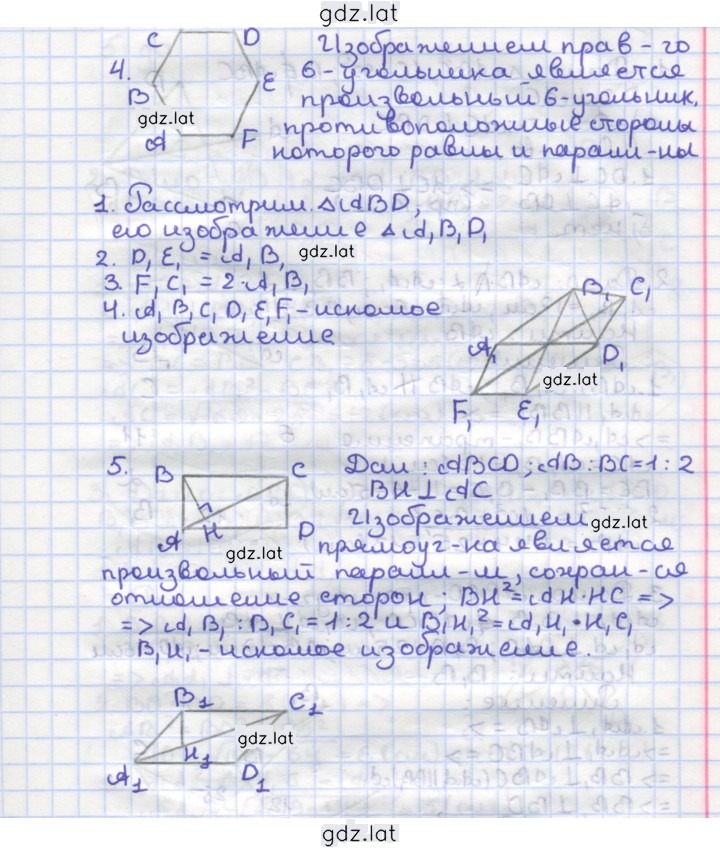 gdz.lat
C D
4. B E
gdz.lat
A F
Изображением прав-го
6-угольника является
произвольный 6-угольник,
противоположные стороны
которого равны и парал-ны
1. Рассмотрим △ABD,
его изображение △A₁B₁D₁
2. D₁E₁ = A₁B₁
gdz.lat
3. F₁C₁ = 2·A₁B₁
4. A₁B₁C₁D₁E₁F₁-искомое
изображение
B₁ C₁
A₁ D₁
gdz.lat
F₁ E₁
5. B C
A H D
gdz.lat
Дан: ABCD; AB:BC=1:2
BH⊥AC
Изображением
gdz.lat
прямоуг-ка является
произвольный паралл-м, сохран-ся
отношение сторон; BH²=AH·HC =>
=> A₁B₁:B₁C₁=1:2 и B₁H₁²=A₁H₁·H₁C₁
B₁H₁-искомое изображение.
B₁ C₁
gdz.lat
H₁
A₁ D₁
gdz.lat